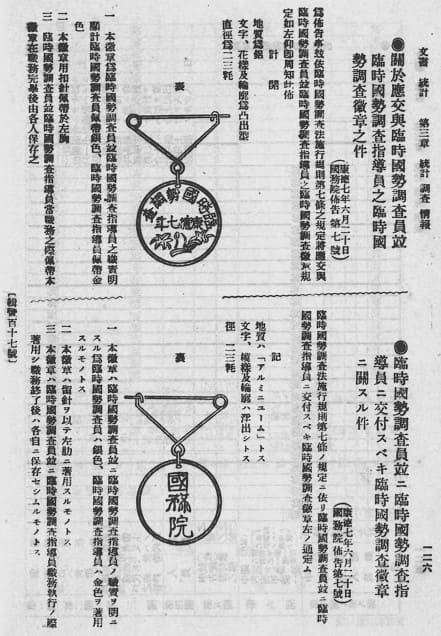 文書 統計 第三章 統計 調査 情報
●關於應交與臨時國勢調查員並
臨時國勢調查指導員之臨時國
勢調查徽章之件
(康德七年六月二十日
國務院佈告第七號)
爲佈告事茲依臨時國勢調查法施行規則第七條之規定將應交與
臨時國勢調查員並臨時國勢調查指導員之臨時國勢調查徽章規
定如左仰即周知此佈
計開
地質爲鋁
文字、花樣及輪廓爲凸出型
直徑爲二三粍
裏
臨時國勢調查
康德七年
一 本徽章爲臨時國勢調查員並臨時國勢調查指導員之職責明
顯計臨時國勢調查員佩帶銀色、臨時國勢調查指導員佩帶金
色
二 本徽章用扣針佩帶於左胸
三 臨時國勢調查員並臨時國勢調查指導員當職務之際佩帶本
徽章在職務完畢後由各人保存之
[輯覽百十七號]
一二六
●臨時國勢調查員並ニ臨時國勢調查指
導員ニ交付スベキ臨時國勢調查徽章
ニ關スル件
(康德七年六月二十日
國務院佈告第七號)
臨時國勢調查法施行規則第七條ノ規定ニ依リ臨時國勢調查員並ニ臨時
國勢調查指導員ニ交付スベキ臨時國勢調查徽章左ノ通定ム
記
地質ハ「アルミニユーム」トス
文字、模樣及輪廓ハ浮出シトス
徑 二三粍
裏
國務院
一 本徽章ハ臨時國勢調查員並ニ臨時國勢調查指導員ノ職責ヲ明ニ
スル爲臨時國勢調查員ハ銀色、臨時國勢調查指導員ハ金色ヲ著用
スルモノトス
二 本徽章ハ留針ヲ以テ左肋ニ著用スルモノトス
三 本徽章ハ臨時國勢調查員並ニ臨時國勢調查指導員職務執行ノ際
著用シ職務終了後ハ各自ニ保存セシムルモノトス